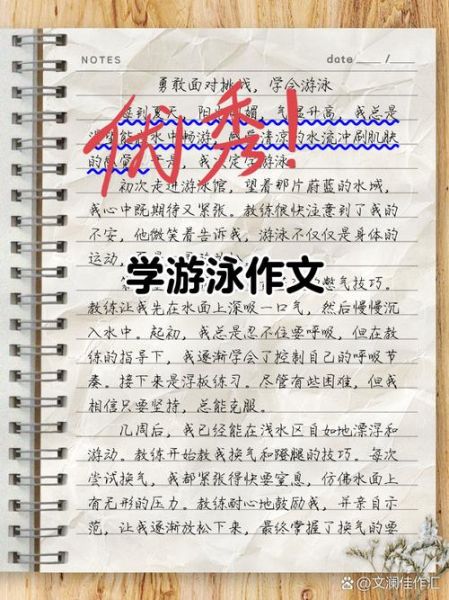 NOTES
date ____ / ____
勇敢面对挑战，学会游泳
优秀！
每到夏天，阳 媚，气温升高，我总是
渴望能 水中畅游，感受清凉的水流冲刷肌肤
的 是，我决定学游泳
初次走进游泳馆，望着那片蔚蓝的水域，
我心中既期待又紧张。教练很快注意到了我的
不安，他微笑着告诉我，游泳不仅仅是身体的
运动，
学游泳作文
憋气技巧。
教练让我先在水面上深吸一口气，然后慢慢沉
入水中。起初，我总是忍不住要呼吸，但在教
练的指导下，我逐渐学会了控制自己的呼吸节
奏。接下来是浮板练习。尽管有些困难，但我
相信只要坚持，总能克服。
几周后，我已经能在浅水区自如地漂浮和
游动。教练开始教我换气和蹬腿的技巧。每次
尝试换气，我都紧张得快要窒息，仿佛水面上
有无形的压力。教练耐心地鼓励我，并亲自示
范，让我逐渐放松下来，最终掌握了换气的要
@文澜佳作汇